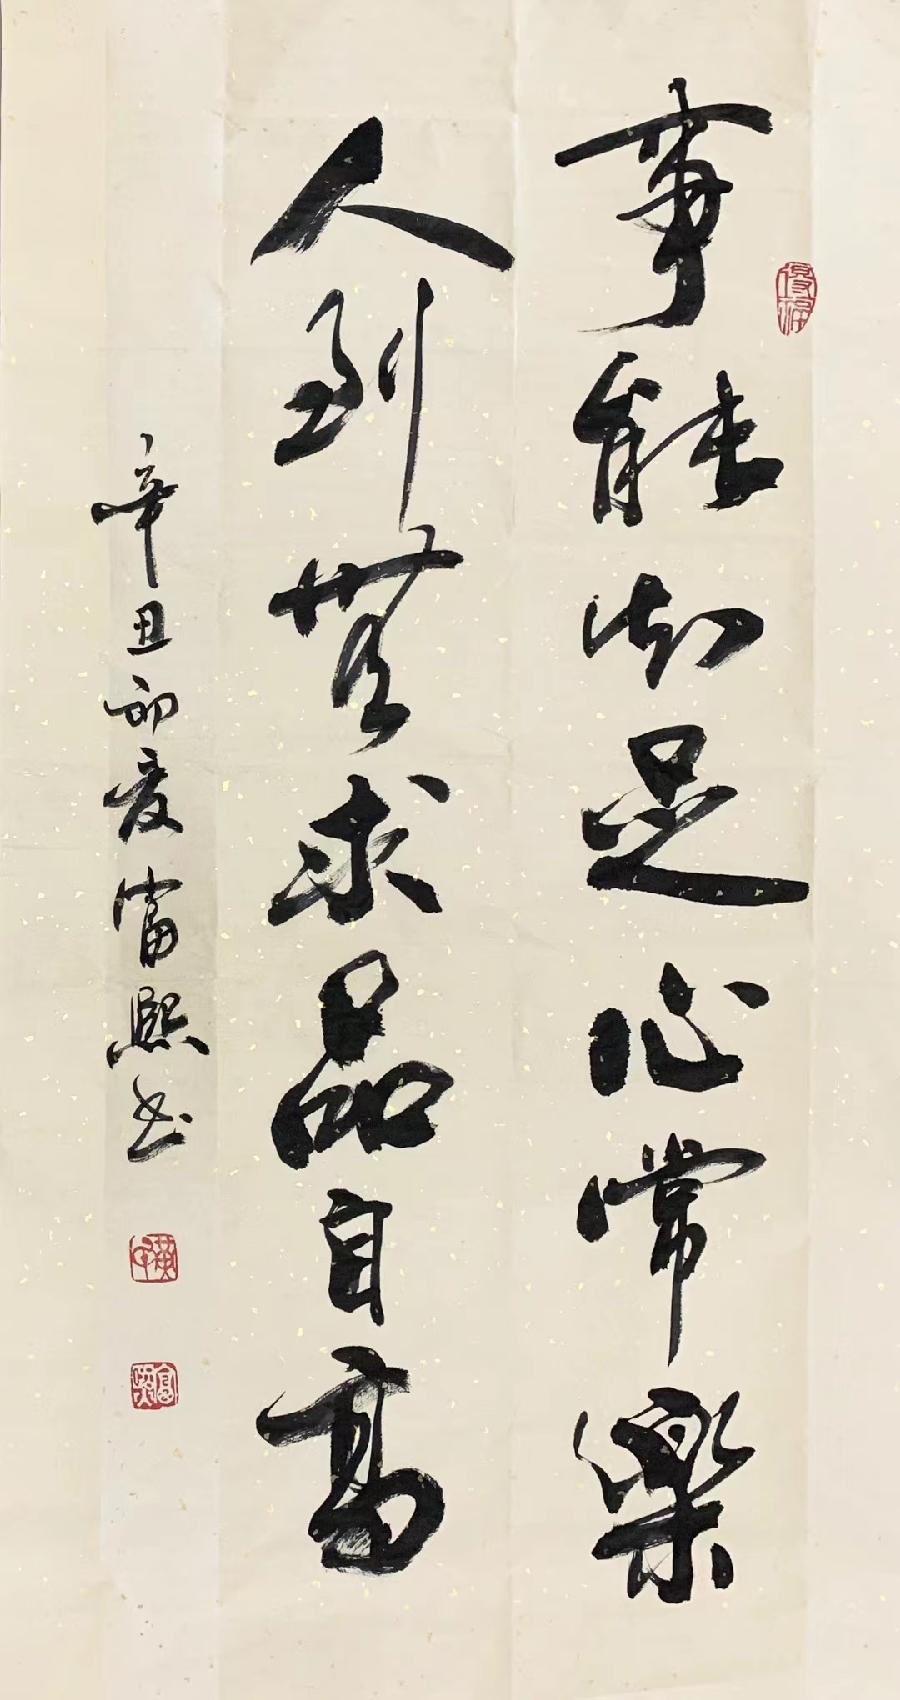 事能知足心常樂
人到無求品自高
辛丑初夏富熙书